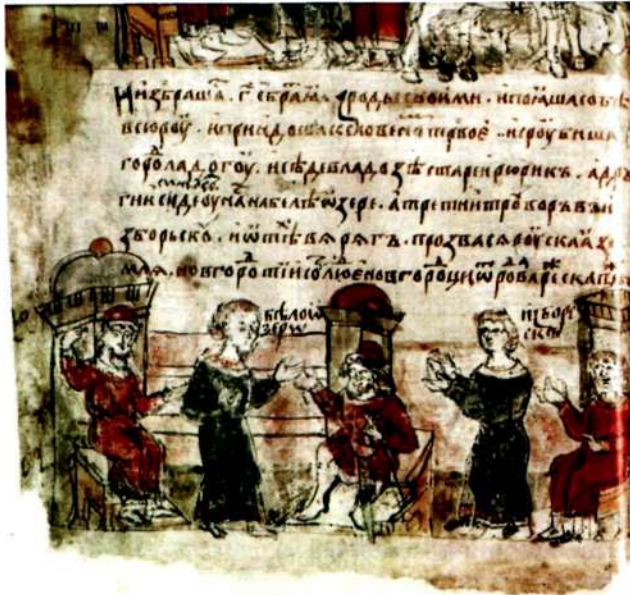 И избраша. г. братьӕ. с роды своими. и поꙗша собѣ
всю роу. и придоша къ словеномъ первое. и сроубиша
горо ладогоу. и сѣде в ладозѣ старей рюрикъ. а дрꙋ
гии сидеоу на белѣ ѡзере. а третии трꙋворъ въ и
зборьскꙋ. и ѿ тѣ варягъ. прозвася роускаа зе
мля. новгоро тїи сꙋ люе новгороци ѿ рода варѣска
бѣлои
ѡзерѡ
изборь
скъ